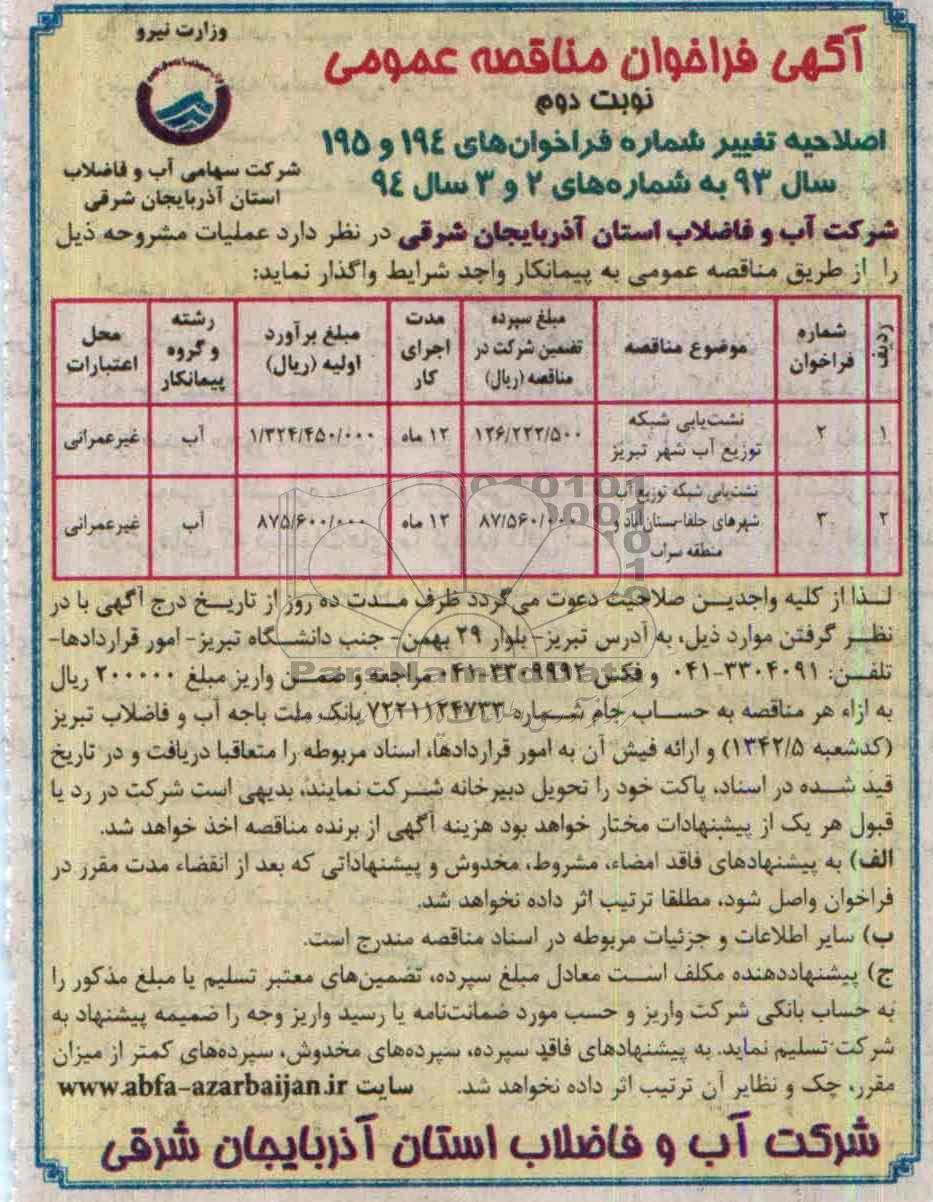 وزارت نیرو
شرکت سهامی آب و فاضلاب
استان آذربایجان شرقی
آگهی فراخوان مناقصه عمومی
نوبت دوم
اصلاحیه تغییر شماره فراخوان‌های ۱۹٤ و ۱۹۵
سال ۹۳ به شماره‌های ۲ و ۳ سال ۹٤
شرکت آب و فاضلاب استان آذربایجان شرقی در نظر دارد عملیات مشروحه ذیل
را از طریق مناقصه عمومی به پیمانکار واجد شرایط واگذار نماید:
ردیف | شماره فراخوان | موضوع مناقصه | مبلغ سپرده تضمین شرکت در مناقصه (ریال) | مدت اجرای کار | مبلغ برآورد اولیه (ریال) | رشته و گروه پیمانکار | محل اعتبارات
۱ | ۲ | نشت‌یابی شبکه توزیع آب شهر تبریز | ۱۳۶/۲۲۲/۵۰۰ | ۱۲ ماه | ۱/۳۲۴/۴۵۰/۰۰۰ | آب | غیرعمرانی
۲ | ۳ | نشت‌یابی شبکه توزیع آب شهرهای جلفا-بستان‌آباد و منطقه سراب | ۸۷/۵۶۰/۰۰۰ | ۱۲ ماه | ۸۷۵/۶۰۰/۰۰۰ | آب | غیرعمرانی
لذا از کلیه واجدین صلاحیت دعوت می‌گردد ظرف مدت ده روز از تاریخ درج آگهی با در
نظر گرفتن موارد ذیل، به آدرس تبریز- بلوار ۲۹ بهمن- جنب دانشگاه تبریز- امور قراردادها-
تلفن: ۳۳۰۴۰۹۱-۰۴۱ و فکس ۳۳۰۹۹۹۲-۰۴۱ مراجعه و ضمن واریز مبلغ ۲۰۰۰۰۰ ریال
به ازاء هر مناقصه به حساب جام شماره ۷۲۲۱۱۲۴۷۳۳ بانک ملت باجه آب و فاضلاب تبریز
(کدشعبه ۱۳۴۲/۵) و ارائه فیش آن به امور قراردادها، اسناد مربوطه را متعاقبا دریافت و در تاریخ
قید شده در اسناد، پاکت خود را تحویل دبیرخانه شرکت نمایند، بدیهی است شرکت در رد یا
قبول هر یک از پیشنهادات مختار خواهد بود هزینه آگهی از برنده مناقصه اخذ خواهد شد.
الف) به پیشنهادهای فاقد امضاء، مشروط، مخدوش و پیشنهاداتی که بعد از انقضاء مدت مقرر در
فراخوان واصل شود، مطلقا ترتیب اثر داده نخواهد شد.
ب) سایر اطلاعات و جزئیات مربوطه در اسناد مناقصه مندرج است.
ج) پیشنهاددهنده مکلف است معادل مبلغ سپرده، تضمین‌های معتبر تسلیم یا مبلغ مذکور را
به حساب بانکی شرکت واریز و حسب مورد ضمانت‌نامه یا رسید واریز وجه را ضمیمه پیشنهاد به
شرکت تسلیم نماید. به پیشنهادهای فاقد سپرده، سپرده‌های مخدوش، سپرده‌های کمتر از میزان
مقرر، چک و نظایر آن ترتیب اثر داده نخواهد شد. سایت www.abfa-azarbaijan.ir
شرکت آب و فاضلاب استان آذربایجان شرقی